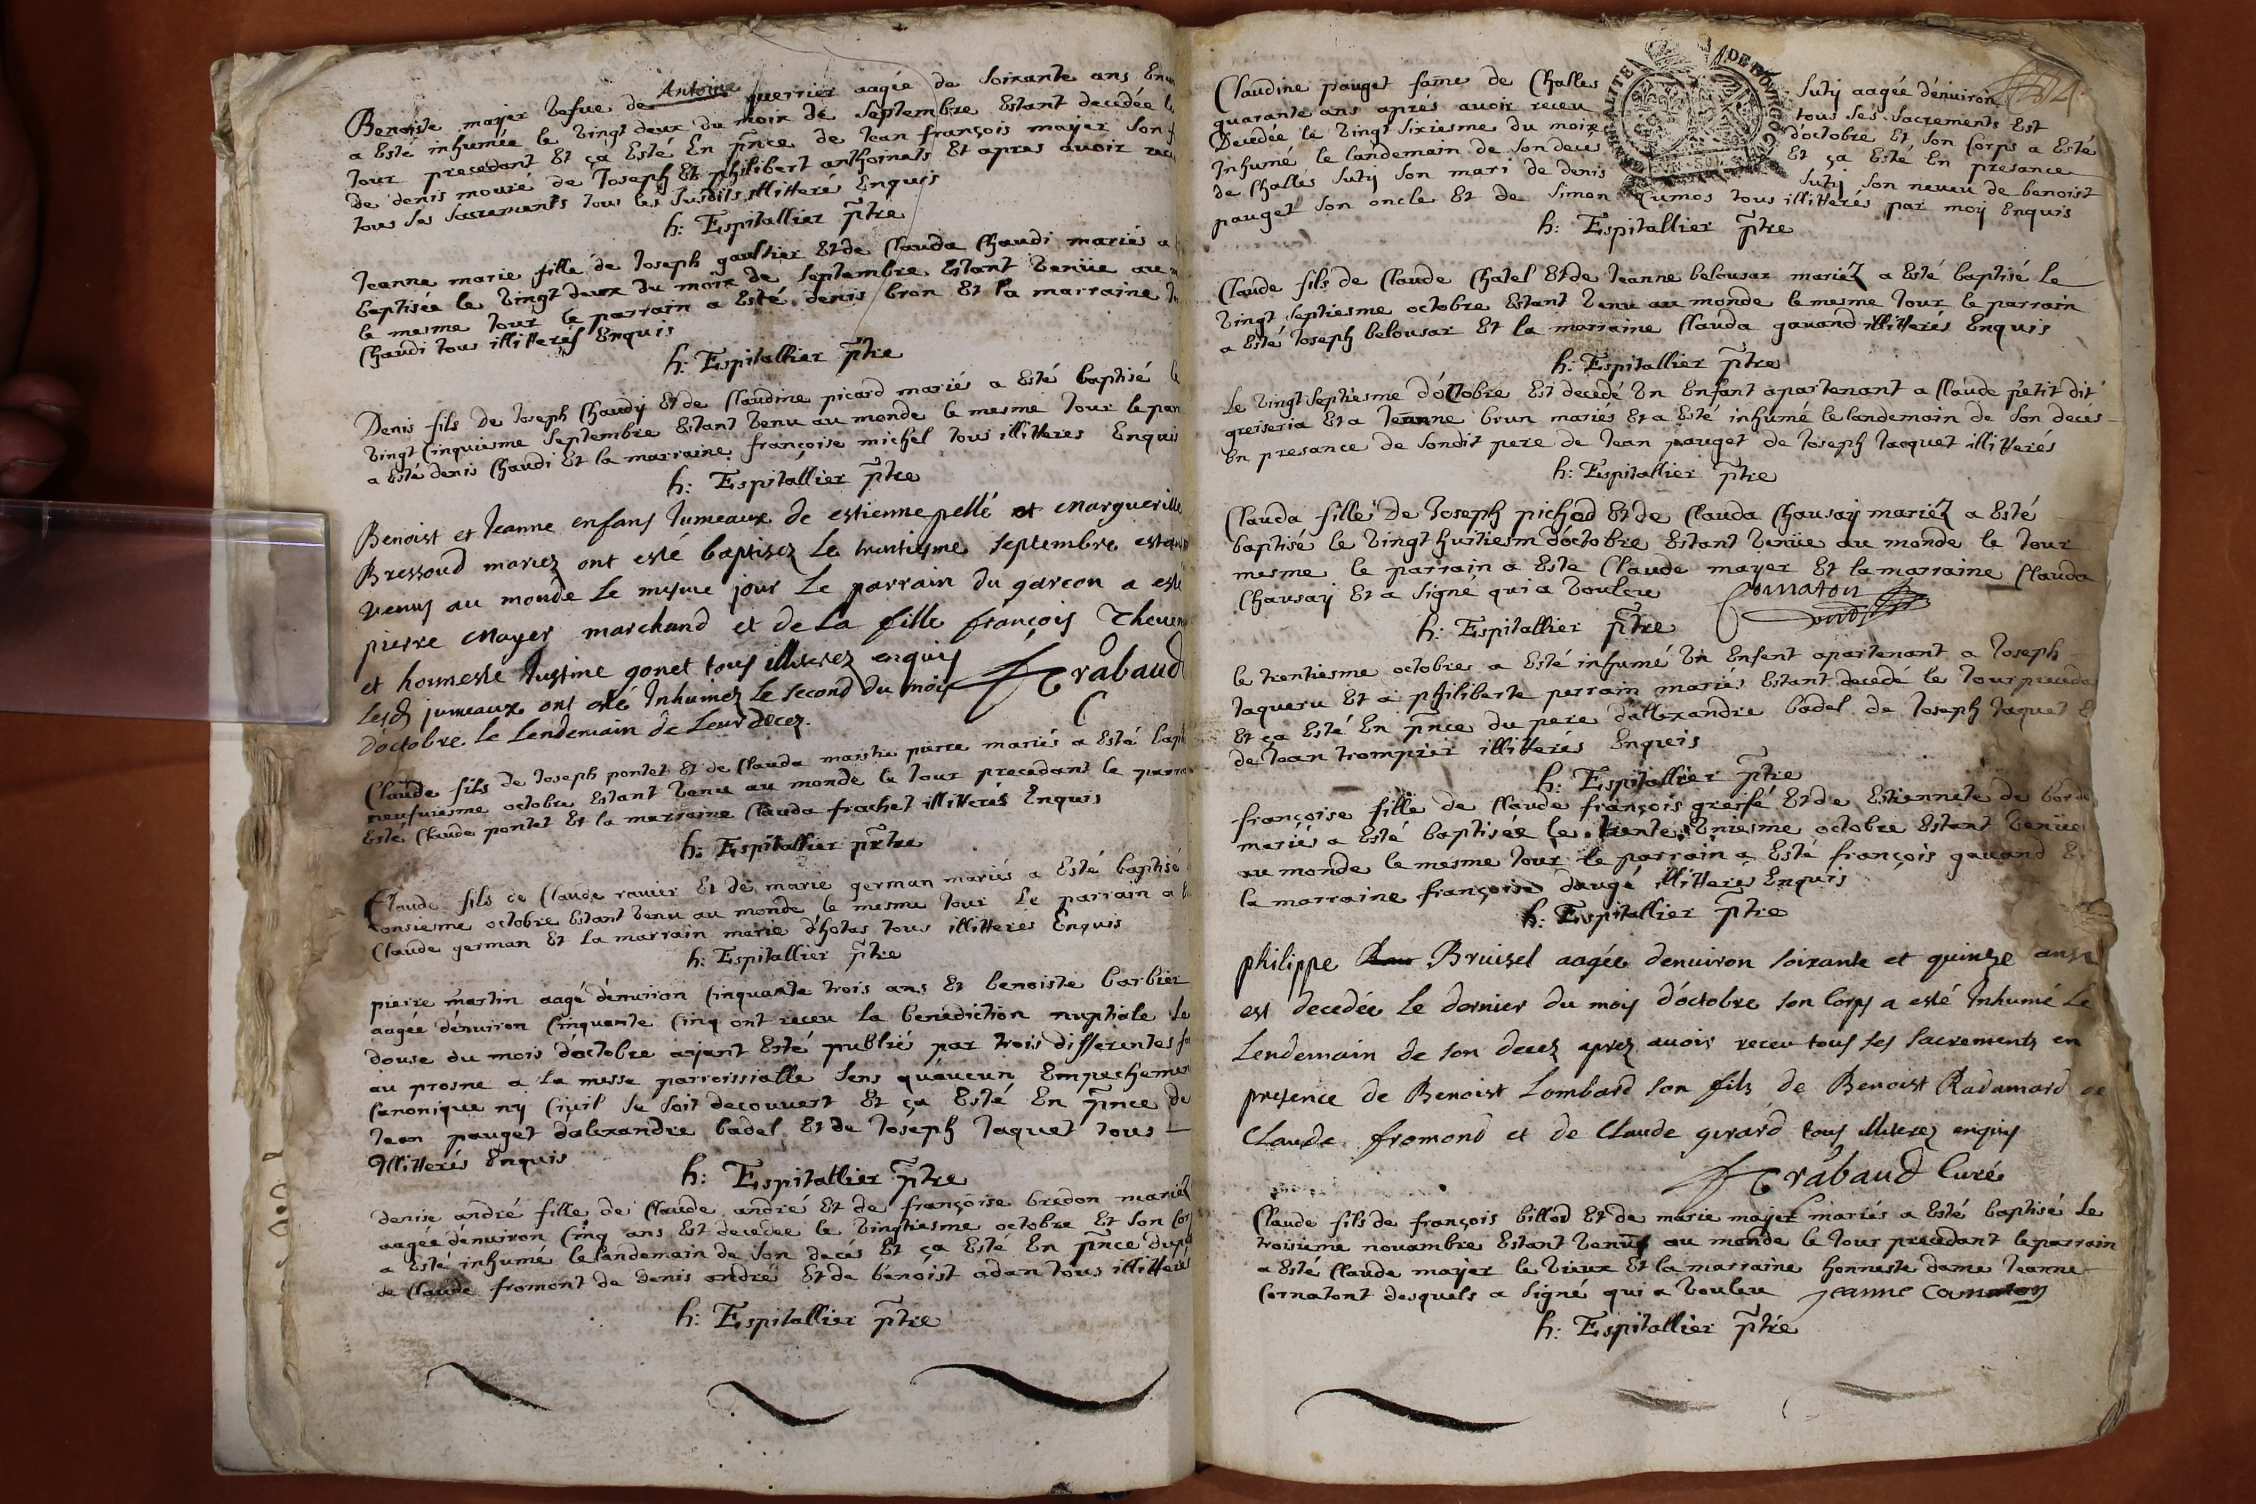 Benoiste mayer vefue de Antoine guerrier aagée de soixante ans
a Esté inhumée le vingt deux du moix de septembre Estant decedée le
Jour precedant Et ça Esté En pnce de Jean françois mayer son
de denis mouré de Joseph Et philibert anthoinats Et apres auoir
tous ses sacrements tous les susdits illitterés Enquis
h: Espitallier ptre
Jeanne marie fille de Joseph gaultier Et de Clauda Chaudi mariés a
baptisée le vingt deux du moix de septembre Estant venüe au
le mesme Jour le parrain a Esté denis bron Et la marraine
Chaudi tous illitterés Enquis
h: Espitallier ptre
Denis fils de Joseph Chaudy Et de Claudine picard mariés a Esté baptisé le
vingt Cinquiesme septembre Estant venu au monde le mesme Jour le
a Esté denis Chaudi Et la marraine françoise michel tous illitteres Enquis
h: Espitallier ptre
Benoist et Jeanne enfans Jumeaux de estienne pellé et Marguerille
Bressoud mariez ont esté baptisez Le trentiesme septembre
venus au monde Le mesme jour Le parrain du garcon a esté
pierre Mayer marchand et de La fille françois
et honneste Justine gonet tous illiterez enquis
Lesd jumeaux ont esté Inhumez Le second du mois Trabaud
d'octobre Le Lendemain de Leur decez.
Claude fils de Joseph pontet Et de Clauda maistre pierre mariés a Esté
neufuiesme octobre Estant venu au monde le Jour precedant le
Esté Claude pontet Et la marraine Clauda frachet illitterés Enquis
h: Espitallier prtre
Claude fils de Claude rauier Et de marie german mariés a Esté baptisé
onsiesme octobre Estant venu au monde le mesme Jour Le parrain a
Claude german Et la marrain marie d'hotas tous illitteres Enquis
h: Espitallier ptre
pierre martin aagé d'enuiron Cinquante trois ans Et benoiste barbier
aagée d'enuiron Cinquante Cinq ont receu la benediction nuptiale le
douse du mois d'octobre aajant Esté publiés par trois differentes
au prosne a la messe parroissialle sens qu'aucun
Canonique ny Ciuil se soit decouuert Et ça Esté En pnce de
Jean pauget d'alexandre badel Et de Joseph Jaquet tous
Illitterés Enquis
h: Espitallier ptre
denise andré fille de Claude andré Et de françoise bredon mariéz
aagée d'enuiron Cinq ans Est decedée le vingtiesme octobre Et son
a Esté inhumé le landemain de son decés Et ça Esté En pnce
de Claude fromont de denis andré Et de benoist adan tous illitterés
h: Espitallier ptre
Claudine pauget fame de Challes suty aagée d'enuiron
quarante ans apres auoir receu tous ses sacrements Est
Decedée le vingt sixiesme du moix d'octobre Et son Corps a Esté
Inhumé le landemain de son deces Et ça Esté En presance
de Challes suty son mari de denis suty son neueu de benoist
pauget son oncle Et de Simon Cumos tous illitterés par moy Enquis
GENERALITE DE BOURGOG
h: Espitallier ptre
Claude fils de Claude Chatel Et de Jeanne belousar mariéz a Esté baptisé le
vingt septiesme octobre Estant venu au monde le mesme Jour le parrain
a Esté Joseph belousar Et la marraine Clauda gauand illitterés Enquis
h: Espitallier ptre
Le vingt septiesme d'octobre Est decedé vn Enfant apartenant a Claude petit dit
greiseria Et a Jeanne brun mariés Et a Esté inhumé le landemain de son decés
En presance de sondit pere de Jean pauget de Joseph Jacquet illitterés
h: Espitallier ptre
Clauda fille de Joseph pichod Et de Clauda Chausay mariéz a Esté
baptisé le vingt huitiesm d'octobre Estant venüe au monde le Jour
mesme le parrain a Esté Claude mayer Et la marraine Clauda
Chausay Et a signé qui a vouleu Cornaton
h: Espitallier ptre
le trentiesme octobre a Esté inhumé vn Enfent apartenant a Joseph
Jaqueru Et a philiberte perrain mariés Estant decedé le Jour
Et ça Esté En pnce du pere d'allexandre badel de Joseph Jaquet
de Jean trompier illitterés Enqueis
h: Espitallier ptre
françoise fille de Claude françois greffé Et de Estiennete de
mariés a Esté baptisée le trente vniesme octobre Estant venüe
au monde le mesme Jour le parrain a Esté françois gauand
la marraine françoise daugé illitteres Enquis
h: Espitallier ptre
philippe Bruisel aagée denuiron soixante et quinze ans
est decedée Le dernier du mois d'octobre son Corps a esté Inhumé Le
Lendemain de son decez aprez auoir receu tous ses sacrements en
presence de Benoist Lombard son fils de Benoist Radamard
Claude fromond et de Claude girard tous illiterez enquis
Trabaud Curé
Claude fils de françois billod Et de marie mayer mariés a Esté baptisé le
troisieme nouambre Estant venus au monde le Jour precedant le parrain
a Esté Claude mayer le vieux Et la marraine honneste dame Jeanne
Cornatont desquels a signé qui a vouleu jeanne Cornaton
h: Espitallier ptre